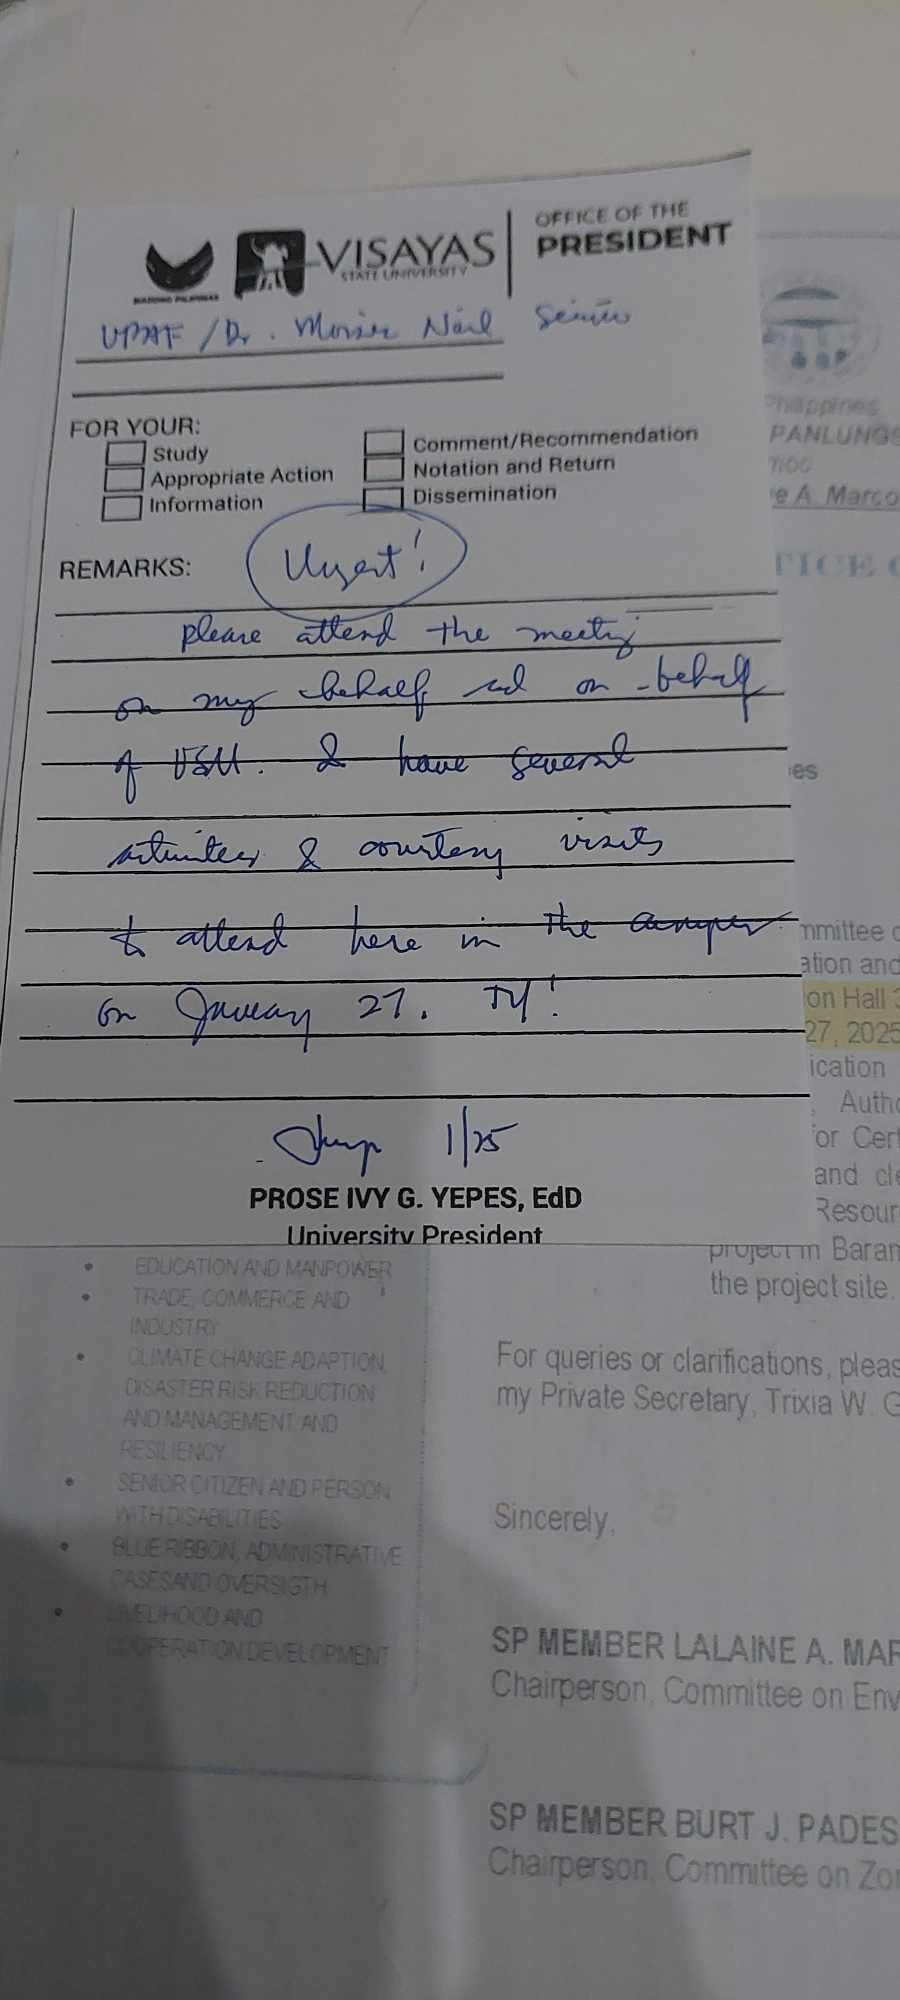 VISAYAS
STATE UNIVERSITY
OFFICE OF THE
PRESIDENT
BAGONG PILIPINAS
VPAF / Dr. Moises Neil Seriño
FOR YOUR:
Study
Appropriate Action
Information
Comment/Recommendation
Notation and Return
Dissemination
REMARKS:
Urgent!
please attend the meeting
on my behalf and on behalf
of VSU. I have several
activities & courtesy visits
to attend here in the campus
on January 27. TY!
1/25
PROSE IVY G. YEPES, EdD
University President
Philippines
PANLUNGS
moc
e A. Marco
TICE O
es
mmittee o
ation and
on Hall 3
27, 2025
ication
, Autho
for Cert
and cle
Resour
project in Baran
the project site.
• EDUCATION AND MANPOWER
• TRADE, COMMERCE AND
INDUSTRY
• CLIMATE CHANGE ADAPTION,
DISASTER RISK REDUCTION
AND MANAGEMENT AND
RESILIENCY
• SENIOR CITIZEN AND PERSON
WITH DISABILITIES
• BLUE RIBBON, ADMINISTRATIVE
CASESAND OVERSIGTH
• LIVELIHOOD AND
COOPERATION DEVELOPMENT
For queries or clarifications, pleas
my Private Secretary, Trixia W. G
Sincerely,
SP MEMBER LALAINE A. MAR
Chairperson, Committee on Env
SP MEMBER BURT J. PADES
Chairperson, Committee on Zo